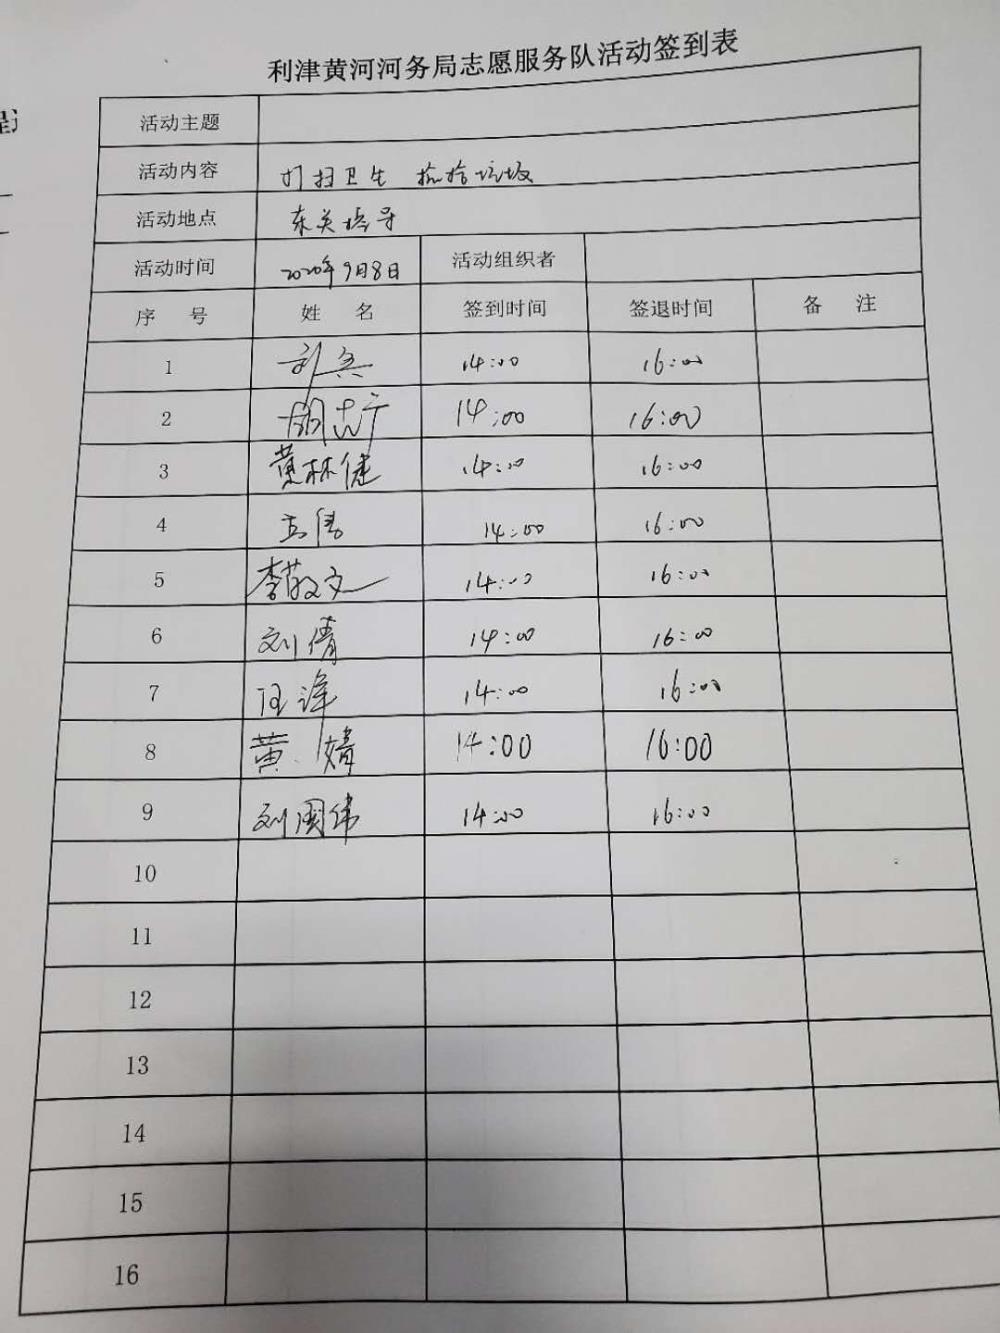 利津黄河河务局志愿服务队活动签到表
活动主题
活动内容 打扫卫生 捡拾垃圾
活动地点 东关
活动时间 2020年9月8日 活动组织者
序 号 姓 名 签到时间 签退时间 备 注
1 刘 14:00 16:00
2 胡志 14:00 16:00
3 黄林健 14:00 16:00
4 14:00 16:00
5 李敬文 14:00 16:00
6 刘倩 14:00 16:00
7 14:00 16:00
8 黄婧 14:00 16:00
9 刘国伟 14:00 16:00
10
11
12
13
14
15
16